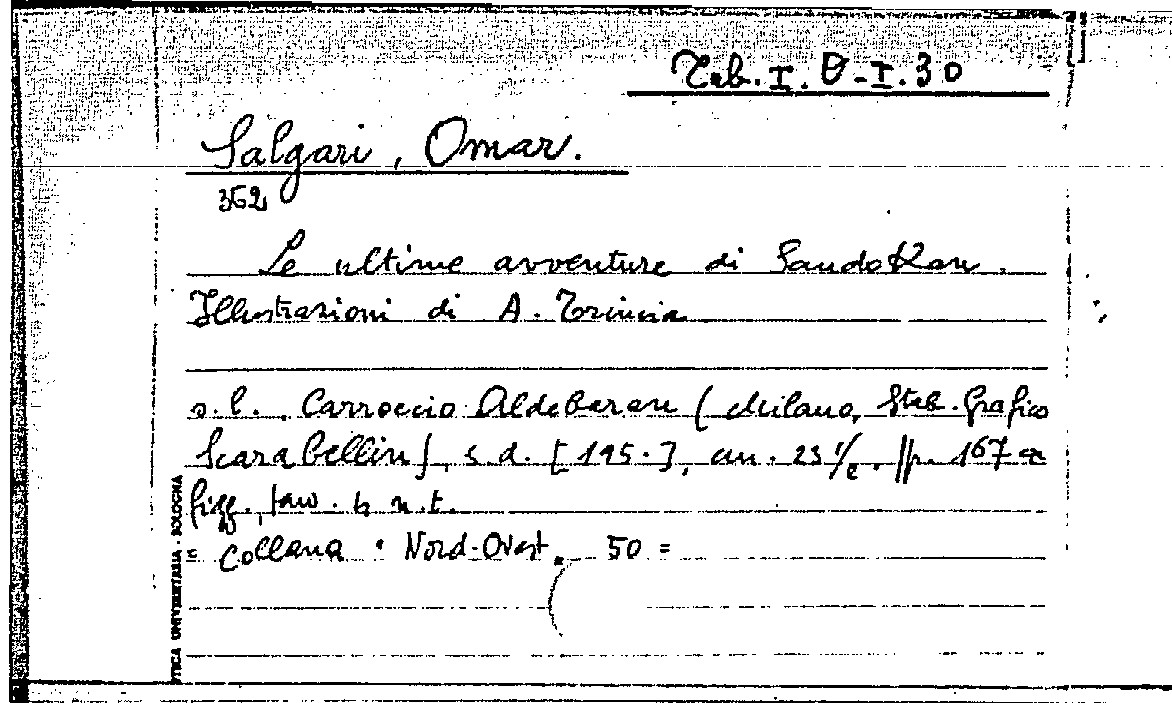 Tab. I. O-I. 30
Salgari, Omar.
352
Le ultime avventure di Sandokan.
Illustrazioni di A.
s.l., Carroccio Aldebaran (Milano, Stab. Grafico
Scarabellin), s.d. [195.], cm. 23½, pp. 167 con
figg., tavv. 4 n.t.
= Collana "Nord-Ovest" 50 =
TECA UNIVERSITARIA - BOLOGNA